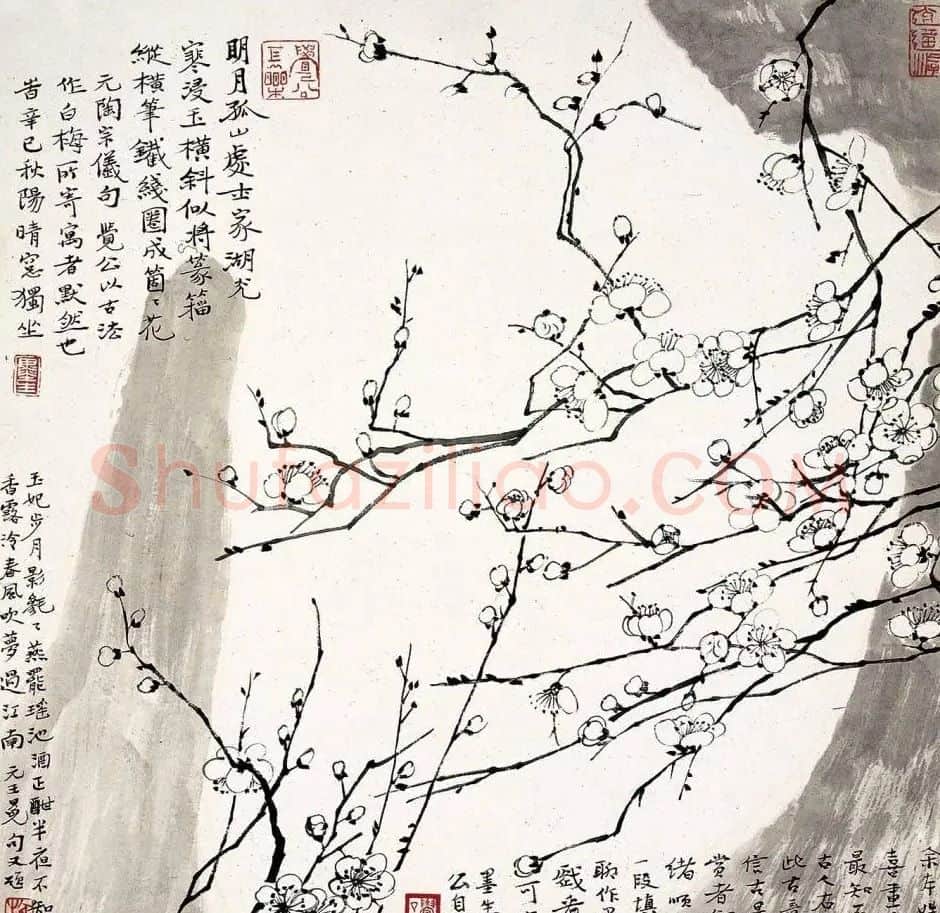 明月孤山處士家湖光
寒浸玉橫斜似將篆籀
縱橫筆鐵綫圈成箇〻花
元陶宗儀句 覺公以古法
作白梅所寄寓者默然也
昔辛巳秋陽晴窓獨坐
玉妃步月影毿〻燕罷瑤池酒正酣半夜不知
香露冷春風吹夢過江南 元王冕句又題
喜畫
最知
古人
此古
信古
賞者
緒順
一段填
聊作
可
墨生
公自
Shufaziliao.COM